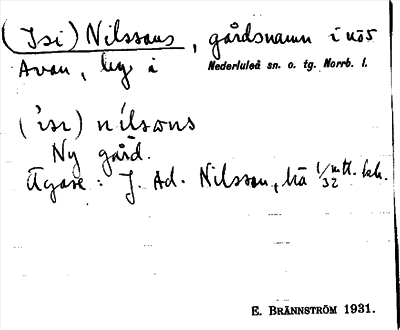 (Isi) Nilssons, gårdsnamn i nö5
Avan, by i Nederluleå sn. o. tg. Norrb. l.
('isi) nílsons
Ny gård.
Ägare: J. Ad. Nilsson, 1/32 mtl.
E. BRÄNNSTRÖM 1931.